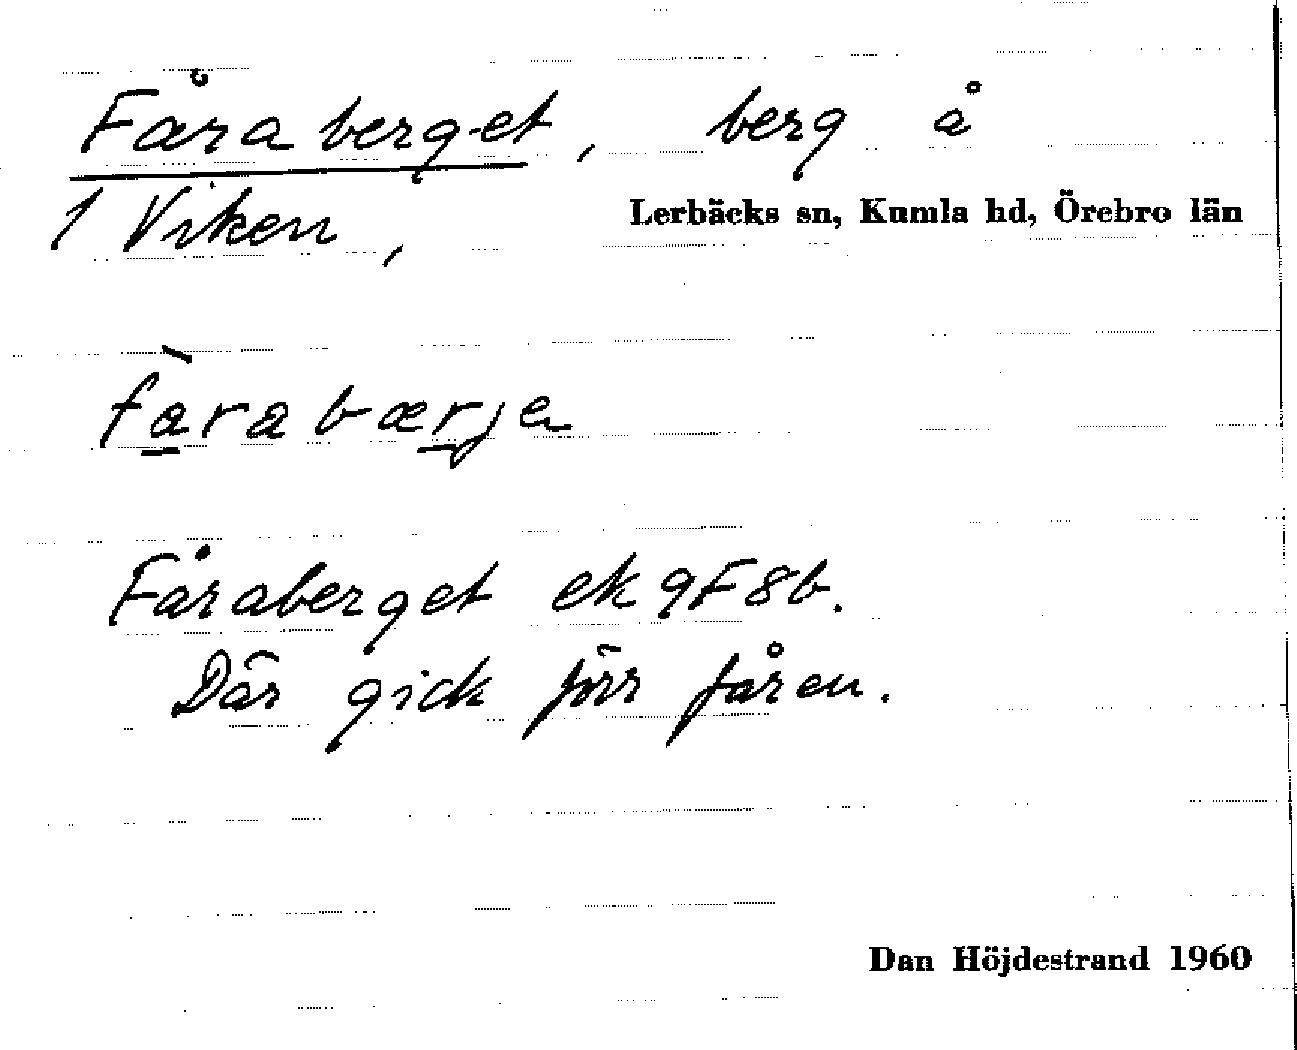 Fåraberget, berg å
1 Viken,
Lerbäcks sn, Kumla hd, Örebro län
fàrabærja
Fåraberget ek 9F8b.
Där gick förr fåren.
Dan Höjdestrand 1960